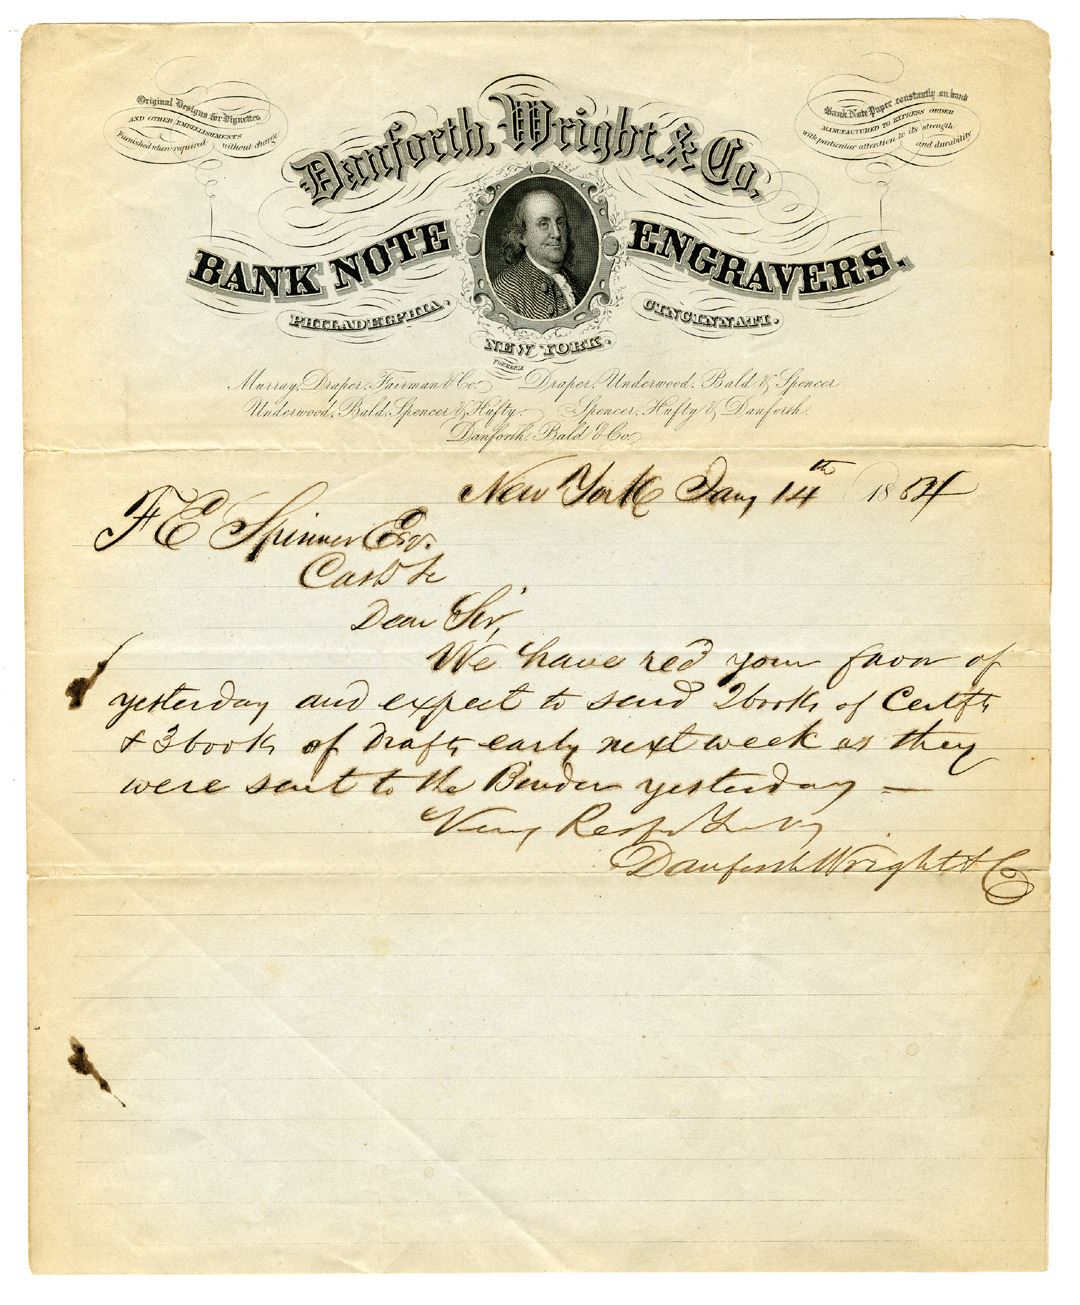 Original Designs for Vignettes
AND OTHER EMBELLISHMENTS
Furnished when required without charge
Bank Note Paper constantly on hand
MANUFACTURED TO EXPRESS ORDER
with particular attention to its strength
and durability
Danforth, Wright & Co.
BANK NOTE ENGRAVERS.
PHILADELPHIA. CINCINNATI.
NEW YORK.
FORMERLY
Murray, Draper, Fairman & Co. Draper, Underwood, Bald & Spencer
Underwood, Bald, Spencer & Hufty. Spencer, Hufty & Danforth.
Danforth, Bald & Co.
New York Jany 14th 1854
F E Spinner Esqr.
Cash &c
Dear Sir,
We have recd your favor of
yesterday and expect to send 2 books of Certfts
& 3 books of drafts early next week as they
were sent to the Binder yesterday —
Very Respectfully
Danforth Wright & Co